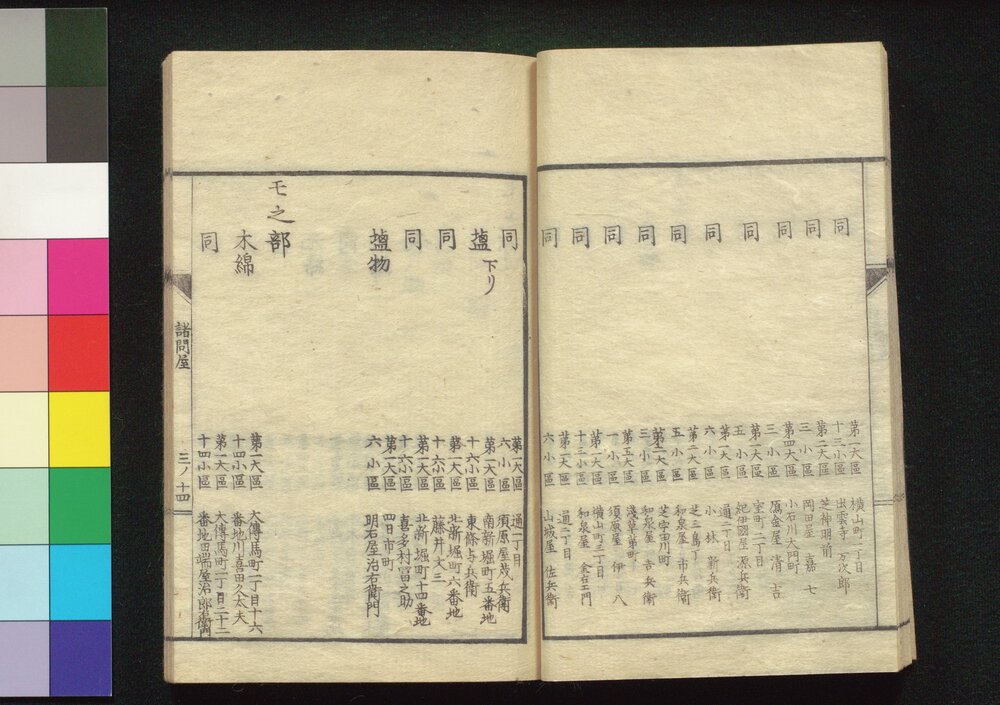 同
第一大區
十三小區
横山町一丁目
出雲寺 万次郎
同
第二大區
三小區
芝神明前
岡田屋 嘉七
同
第四大區
三小區
小石川大門町
鴈金屋 清吉
同
第一大區
五小區
室町二丁目
紀伊國屋 源兵衛
同
第一大區
六小區
通二丁目
小林 新兵衛
同
第二大區
五小區
芝三島丁
和泉屋 市兵衛
同
第二大區
三小區
芝宇田川町
和泉屋 吉兵衛
同
第五大區
一小區
淺草茅町
須原屋 伊八
同
第一大區
十三小區
横山町三丁目
和泉屋 金右エ門
同
第一大區
六小區
通二丁目
山城屋 佐兵衛
同
第一大區
六小區
通一丁目
須原屋茂兵衛
塩 下り
第一大區
十六小區
南新堀町五番地
東條与兵衛
同
第一大區
十六小區
北新堀町六番地
藤井文三
同
第一大區
十六小區
北新堀町十四番地
喜多村富之助
塩物
第一大區
六小區
四日市町
明石屋治右衛門
モ之部
木綿
第一大區
十四小區
大傳馬町一丁目十六
番地川喜田久太夫
同
第一大區
十四小區
大傳馬町一丁目二十二
番地田端屋治郎右衛門
諸問屋
三ノ十四